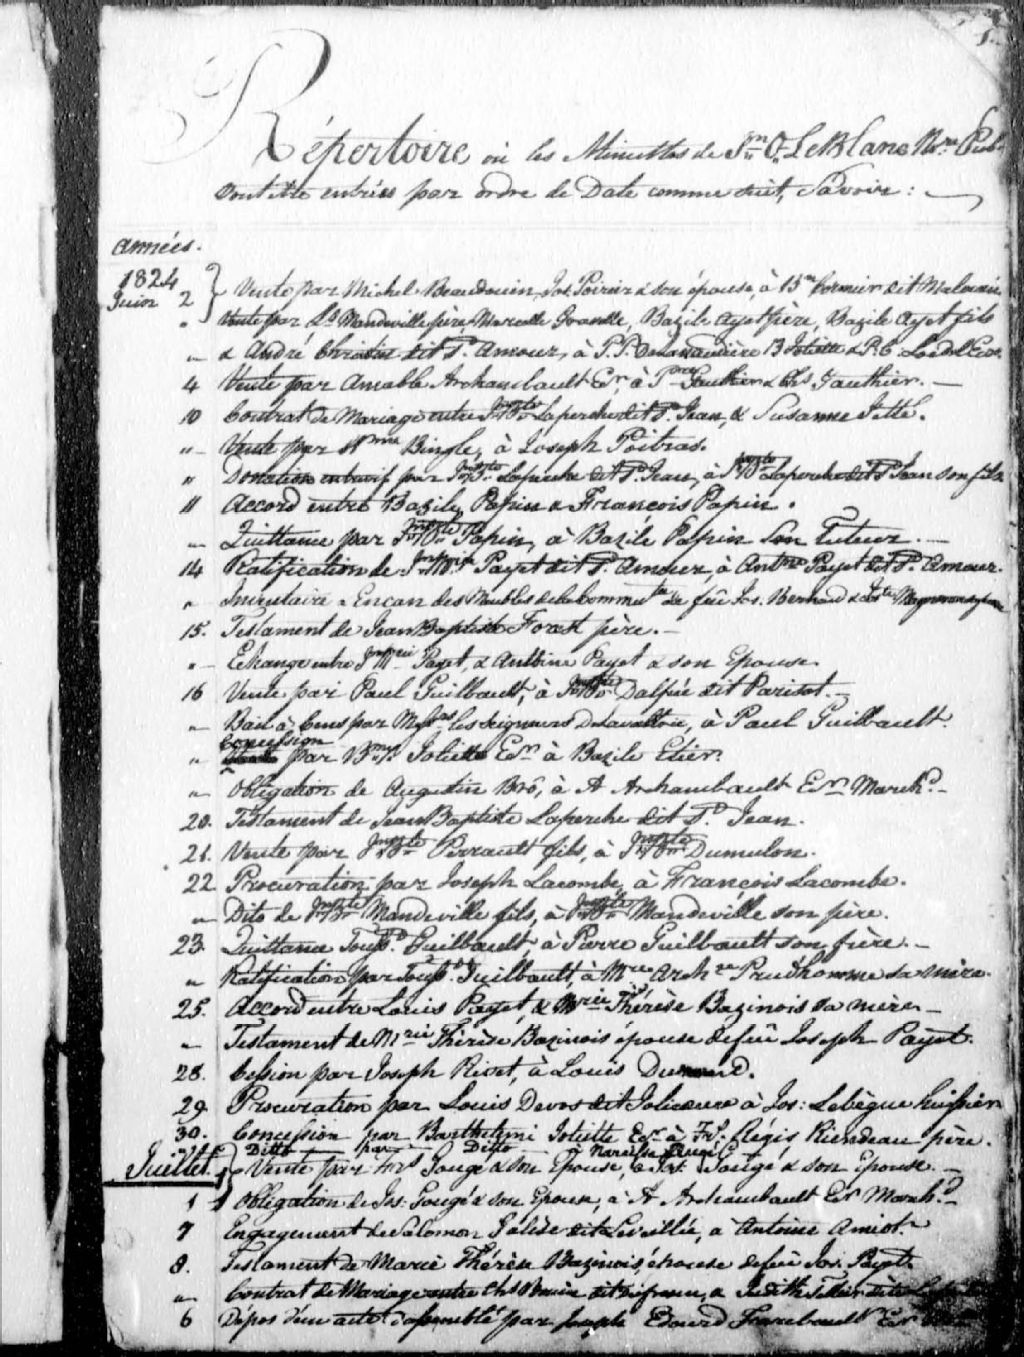 1.
Répertoire où les Minuttes de Jn O. LeBlanc Nre Pub.
vont être entrées par ordre de Date comme suit, Savoir :
Années.
1824
Juin 2 Vente par Michel Beaudouin, Jos. Poirier & son épouse, à Bm dit
" Vente par Ls Mandeville père, Marcelle, Bazile Ayet père, Bazile Ayet fils
" & André Christin dit St. Amour, à P. P. B Joliette & P. C. Loedel Ecr.
4 Vente par Amable Archambault Er, à Pre Gauthier & Chs Gauthier.
10 Contrat de Mariage entre Jn Bte Laperche dit St. Jean, & Susanne
" Vente par Wm Bingle, à Joseph Poitras.
" Donation entrevif par Jn Bte Laperche dit St. Jean, à Jn Bte Laperche dit St Jean son fils
11 Accord entre Bazile Papin & François Papin.
" Quittance par Jn Bte Papin, à Bazile Papin Son Tuteur.
14 Ratification de Jn Mie Payet dit St. Amour, à Antne Payet dit St. Amour.
" Inventaire & Encan des Meubles de la Commté de feu Jos. Bernard &
15. Testament de Jean Baptiste Forest père.
" Echange entre Jn Mie Payet, & Antoine Payet & son Epouse.
16 Vente par Paul Guilbault, à Jn Bte Dalpée dit Parisot.
" Bail à Cens par Mrs les Seigneurs De Lavaltrie, à Paul Guilbault.
Concession
" par Bmy Joliette Ecr à Bazile Etier.
" Obligation de Augustin Brô, à A Archambault Ecr Marchd.
20. Testament de Jean Baptiste Laperche dit St. Jean.
21. Vente par Jn Bte Perrault fils, à Jn Bte Dumulon.
22 Procuration par Joseph Lacombe, à François Lacombe.
" Dito de Jn Bte Mandeville fils, à Jn Bte Mandeville son père.
23. Quittance Toussd Guilbault à Pierre Guilbault son frère.
" Ratification par Toussd Guilbault, à Mre Archre Prudhomme sa mère.
25. Accord entre Louis Payet, & Mrie Thérèse Bazinois sa mère
" Testament de Mrie Thérèse Bazinois épouse de feu Joseph Payet.
28. Cession par Joseph Rivet, à Louis Dumond.
29. Procuration par Louis Devos dit Jolicoeur à Jos: Lebègue huissier
30. Concession par Barthelemi Joliette Ecr à Frs. Régis Riendeau père.
" Ditto par Ditto à Narcisse
Juillet 1 Vente par Frs Gougé & son Epouse, à Jos Gougé & son Epouse.
1 Obligation de Jos. Gougé & son Epouse, à A Archambault Ecr Marchd.
7 Engagement de Salomon dit Leveillée, à Antoine Amiot.
8. Testament de Marie Thérèse Bazinois, épouse de feu Jos. Payet.
" Contrat de Mariage entre Chs dit & Judith Tellier dite
6 Dépos d'un acte d'assemblé par Joseph Edouard Ecr